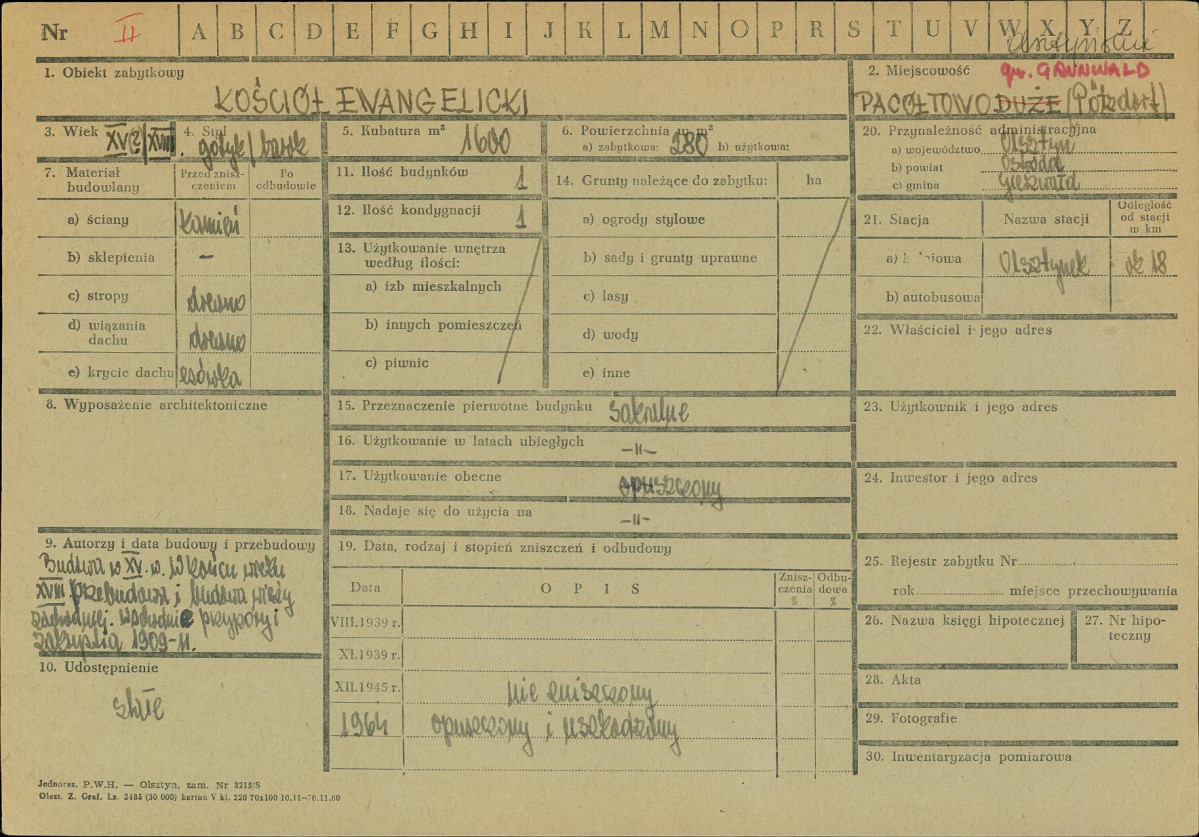 Nr II A B C D E F G H I J K L M N O P R S T U V W X Y Z
olsztyńskie
1. Obiekt zabytkowy
KOŚCIÓŁ EWANGELICKI
2. Miejscowość gm. GRUNWALD
PACÓŁTOWO DUŻE /Pötzdorf/
3. Wiek XV(?)/XVIII
4. Styl gotyk/barok
5. Kubatura m³ 1600
6. Powierzchnia w m²
a) zabytkowa: 280 b) użytkowa:
20. Przynależność administracyjna
a) województwo Olsztyn
b) powiat Ostróda
c) gmina Gierzwałd
7. Materiał budowlany
Przed znisz-
czeniem
Po
odbudowie
a) ściany kamień
b) sklepienia –
c) stropy drewno
d) wiązania
dachu drewno
e) krycie dachu esówka
11. Ilość budynków 1
12. Ilość kondygnacji 1
13. Użytkowanie wnętrza
według ilości:
a) izb mieszkalnych
b) innych pomieszczeń
c) piwnic
14. Grunty należące do zabytku: ha
a) ogrody stylowe
b) sady i grunty uprawne
c) lasy
d) wody
e) inne
21. Stacja Nazwa stacji
Odległość
od stacji
w km
a) kolejowa Olsztynek ok 18
b) autobusowa
22. Właściciel i jego adres
8. Wyposażenie architektoniczne
15. Przeznaczenie pierwotne budynku sakralne
16. Użytkowanie w latach ubiegłych –||–
17. Użytkowanie obecne opuszczony
18. Nadaje się do użycia na –||–
23. Użytkownik i jego adres
24. Inwestor i jego adres
9. Autorzy i data budowy i przebudowy
Budowa w XV. w. W końcu wieku
XVIII przebudowa i budowa wieży
zachodniej. wschodnie przypory i
zakrystia 1909-11.
10. Udostępnienie
stałe
19. Data, rodzaj i stopień zniszczeń i odbudowy
Data O P I S
Znisz-
czenia
%
Odbu-
dowa
%
VIII.1939 r.
XI.1939 r.
XII.1945 r. nie zniszczony
1964 opuszczony i uszkodzony
25. Rejestr zabytku Nr
rok miejsce przechowywania
26. Nazwa księgi hipotecznej
27. Nr hipo-
teczny
28. Akta
29. Fotografie
30. Inwentaryzacja pomiarowa
Jednoraz. P.W.H. — Olsztyn, zam. Nr 3215/S
Olszt. Z. Graf. Lz. 2485 (30 000) karton V kl. 220 70x100 10.11—30.11.60